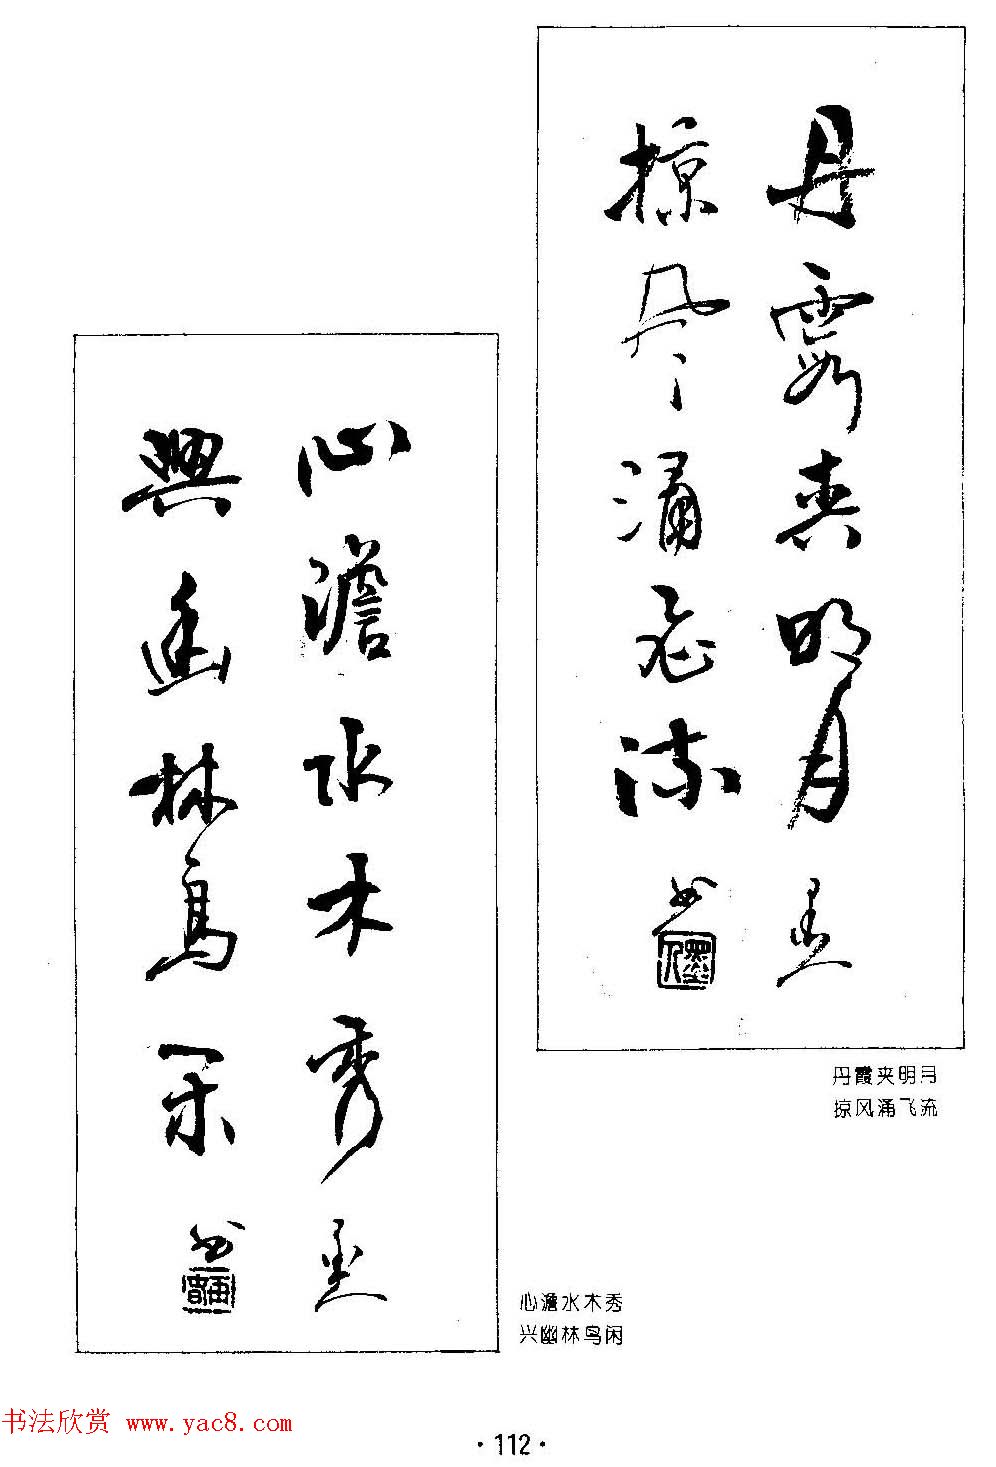 丹霞夹明月
掠风涌飞流
丹霞夹明月
掠风涌飞流
心澹水木秀
興幽林鳥闲
心澹水木秀
兴幽林鸟闲
书法欣赏 www.yac8.com
·112·